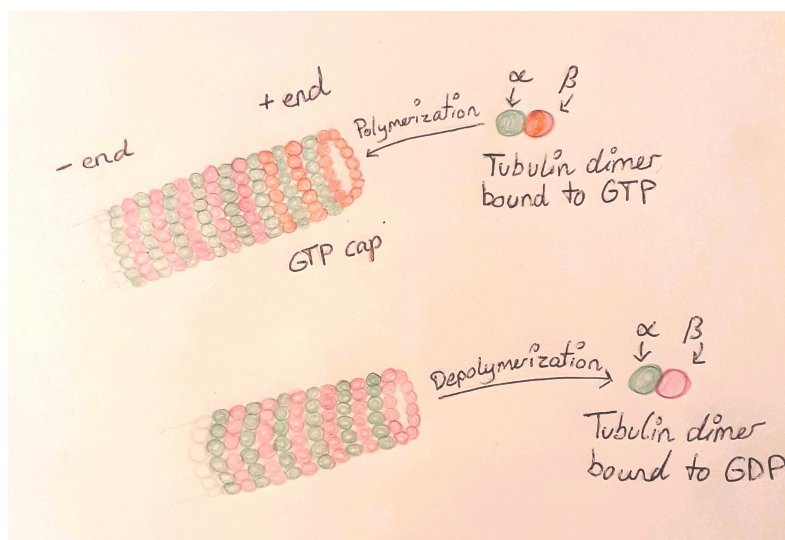 α β
+ end
Polymerization
- end
Tubulin dimer
bound to GTP
GTP cap
α β
Depolymerization
Tubulin dimer
bound to GDP